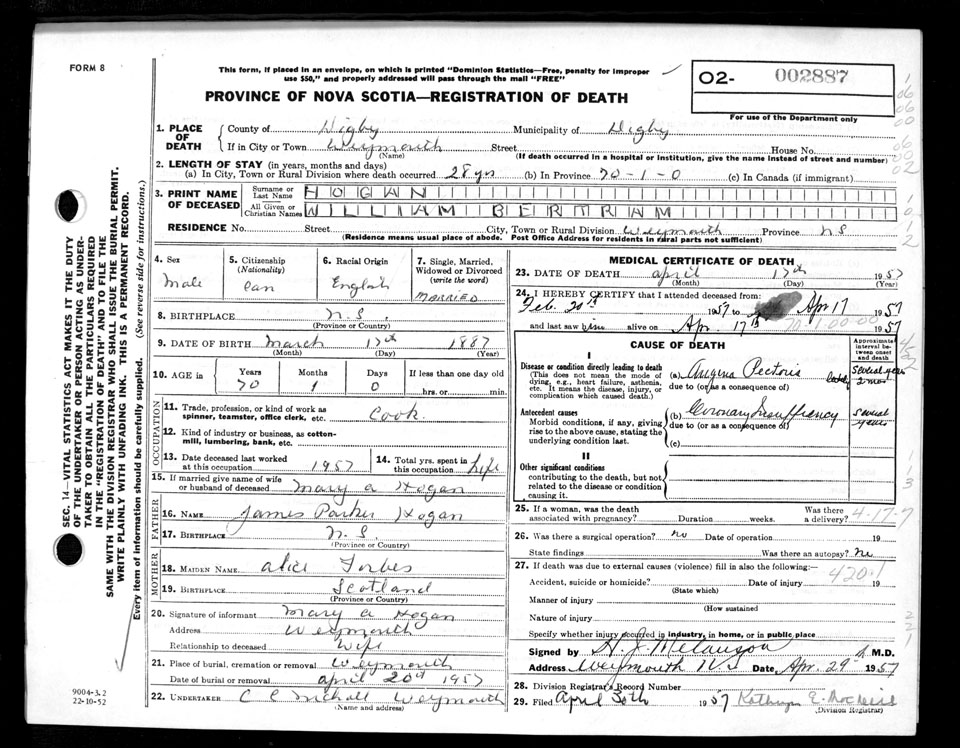 FORM 8
This form, if placed in an envelope, on which is printed "Dominion Statistics—Free, penalty for improper
use $50," and properly addressed will pass through the mail "FREE"
02- 002887
For use of the Department only
PROVINCE OF NOVA SCOTIA—REGISTRATION OF DEATH
1. PLACE OF DEATH
County of Digby Municipality of Digby
If in City or Town Weymouth Street House No.
(Name) (If death occurred in a hospital or institution, give the name instead of street and number)
2. LENGTH OF STAY (in years, months and days)
(a) In City, Town or Rural Division where death occurred 28 yrs (b) In Province 70-1-0 (c) In Canada (if immigrant)
3. PRINT NAME OF DECEASED
Surname or Last Name HOGAN
All Given or Christian Names WILLIAM BERTRAM
RESIDENCE No. Street City, Town or Rural Division Weymouth Province NS
(Residence means usual place of abode. Post Office Address for residents in rural parts not sufficient)
4. Sex
Male
5. Citizenship
(Nationality)
Can
6. Racial Origin
English
7. Single, Married,
Widowed or Divorced
(write the word)
MARRIED
8. BIRTHPLACE N.S.
(Province or Country)
9. DATE OF BIRTH March 17th 1887
(Month) (Day) (Year)
10. AGE in Years Months Days If less than one day old
70 1 0 hrs. or min.
OCCUPATION
11. Trade, profession, or kind of work as
spinner, teamster, office clerk, etc. Cook
12. Kind of industry or business, as cotton-
mill, lumbering, bank, etc.
13. Date deceased last worked
at this occupation 1957
14. Total yrs. spent in
this occupation Life
15. If married give name of wife
or husband of deceased Mary A Hogan
FATHER
16. NAME James Parker Hogan
17. BIRTHPLACE N.S.
(Province or Country)
MOTHER
18. MAIDEN NAME Alice Forbes
19. BIRTHPLACE Scotland
(Province or Country)
20. Signature of informant Mary A Hogan
Address Weymouth
Relationship to deceased Wife
21. Place of burial, cremation or removal Weymouth
Date of burial or removal April 20th 1957
22. UNDERTAKER C C Weymouth
(Name and address)
MEDICAL CERTIFICATE OF DEATH
23. DATE OF DEATH April 17th 1957
(Month) (Day) (Year)
24. I HEREBY CERTIFY that I attended deceased from:
Feb. 20th 1957 to Apr 17 1957
and last saw him alive on Apr. 17th 1957
CAUSE OF DEATH
Approximate
interval be-
tween onset
and death
I
Disease or condition directly leading to death
(This does not mean the mode of
dying, e.g., heart failure, asthenia,
etc. It means the disease, injury, or
complication which caused death.)
(a) Angina Pectoris
due to (or as a consequence of)
Antecedent causes
Morbid conditions, if any, giving
rise to the above cause, stating the
underlying condition last.
(b) Coronary Insufficiency several years
due to (or as a consequence of)
(c)
II
Other significant conditions
contributing to the death, but not
related to the disease or condition
causing it.
25. If a woman, was the death
associated with pregnancy? Duration weeks. Was there
a delivery? 4-17-7
26. Was there a surgical operation? no Date of operation 19
State findings Was there an autopsy? no
27. If death was due to external causes (violence) fill in also the following:—
420.1
Accident, suicide or homicide? Date of injury 19
(State which)
Manner of injury
(How sustained)
Nature of injury
Specify whether injury occurred in industry, in home, or in public place
Signed by H. J. Melanson M.D.
Address Weymouth N.S. Date, Apr. 29 1957
28. Division Registrar's Record Number
29. Filed April 30th 1957 Kathryn E.
(Division Registrar)
SEC. 14—VITAL STATISTICS ACT MAKES IT THE DUTY
OF THE UNDERTAKER OR PERSON ACTING AS UNDER-
TAKER TO OBTAIN ALL THE PARTICULARS REQUIRED
IN THE "REGISTRATION OF DEATH" AND TO FILE THE
SAME WITH THE DIVISION REGISTRAR WHO SHALL ISSUE THE BURIAL PERMIT.
WRITE PLAINLY WITH UNFADING INK. THIS IS A PERMANENT RECORD.
Every item of information should be carefully supplied. (See reverse side for instructions.)
9004-3.2
22-10-52